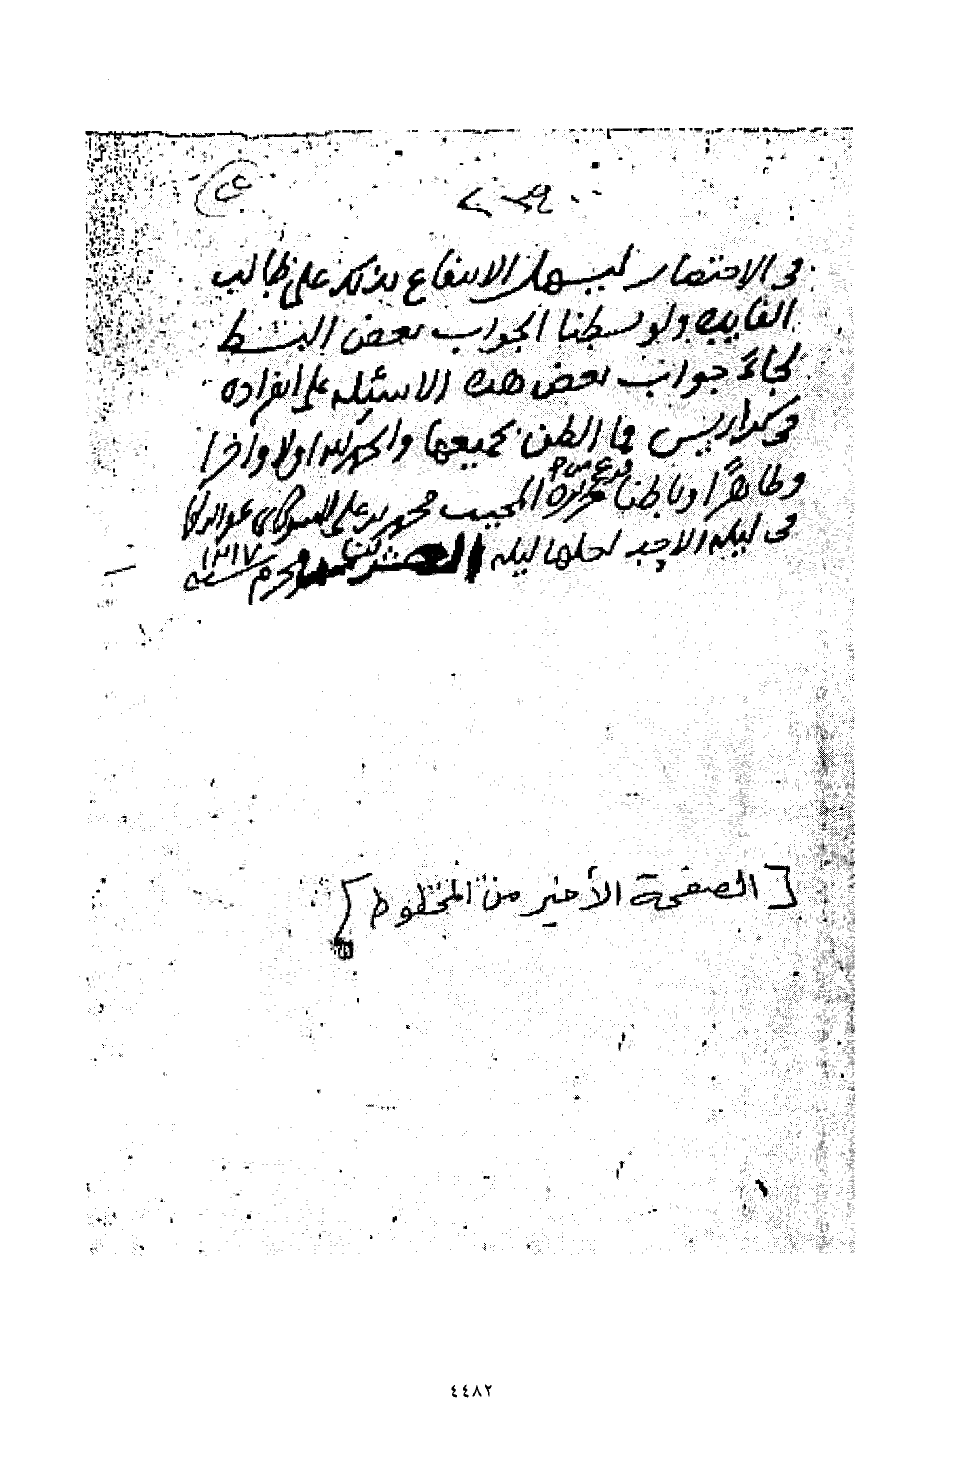 في الاختصار ليسهل الانتفاع بذلك على طالب
الفايده ولو بسطنا الجواب بعض البسط
لجاء جواب بعض هذه الاسئله على انفراده
في كراريس فما الظن بجميعها والحمد لله اولا واخرا
وظاهرا وباطنا فرغ من حرره المجيب محمد بن علي الشوكاني غفر الله لهما
في ليلة الاحد لعلها ليله محرم سنة ١٢١٧
[الصفحة الأخير من المخطوط]
٤٤٨٢